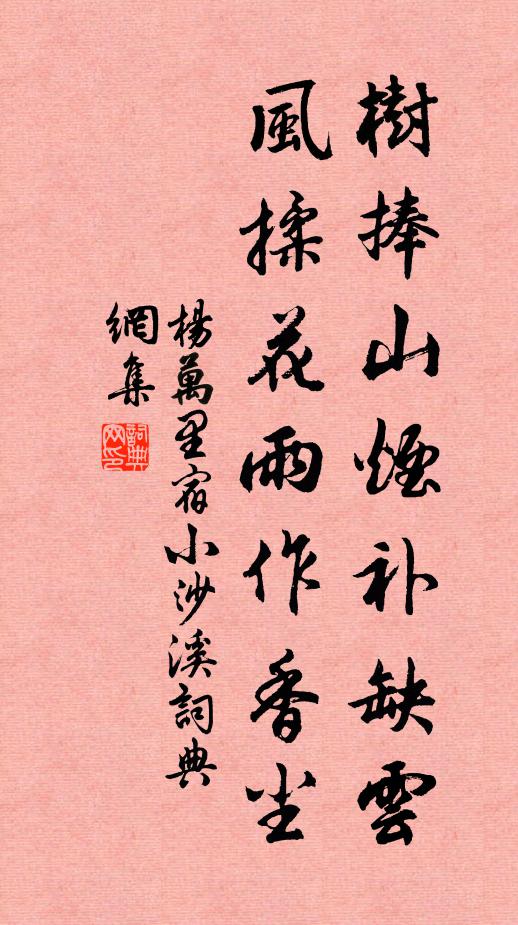 樹捧山煙补缺雲
風揉花雨作香尘
楊萬里宿小沙溪詞典
網集
詞典网印